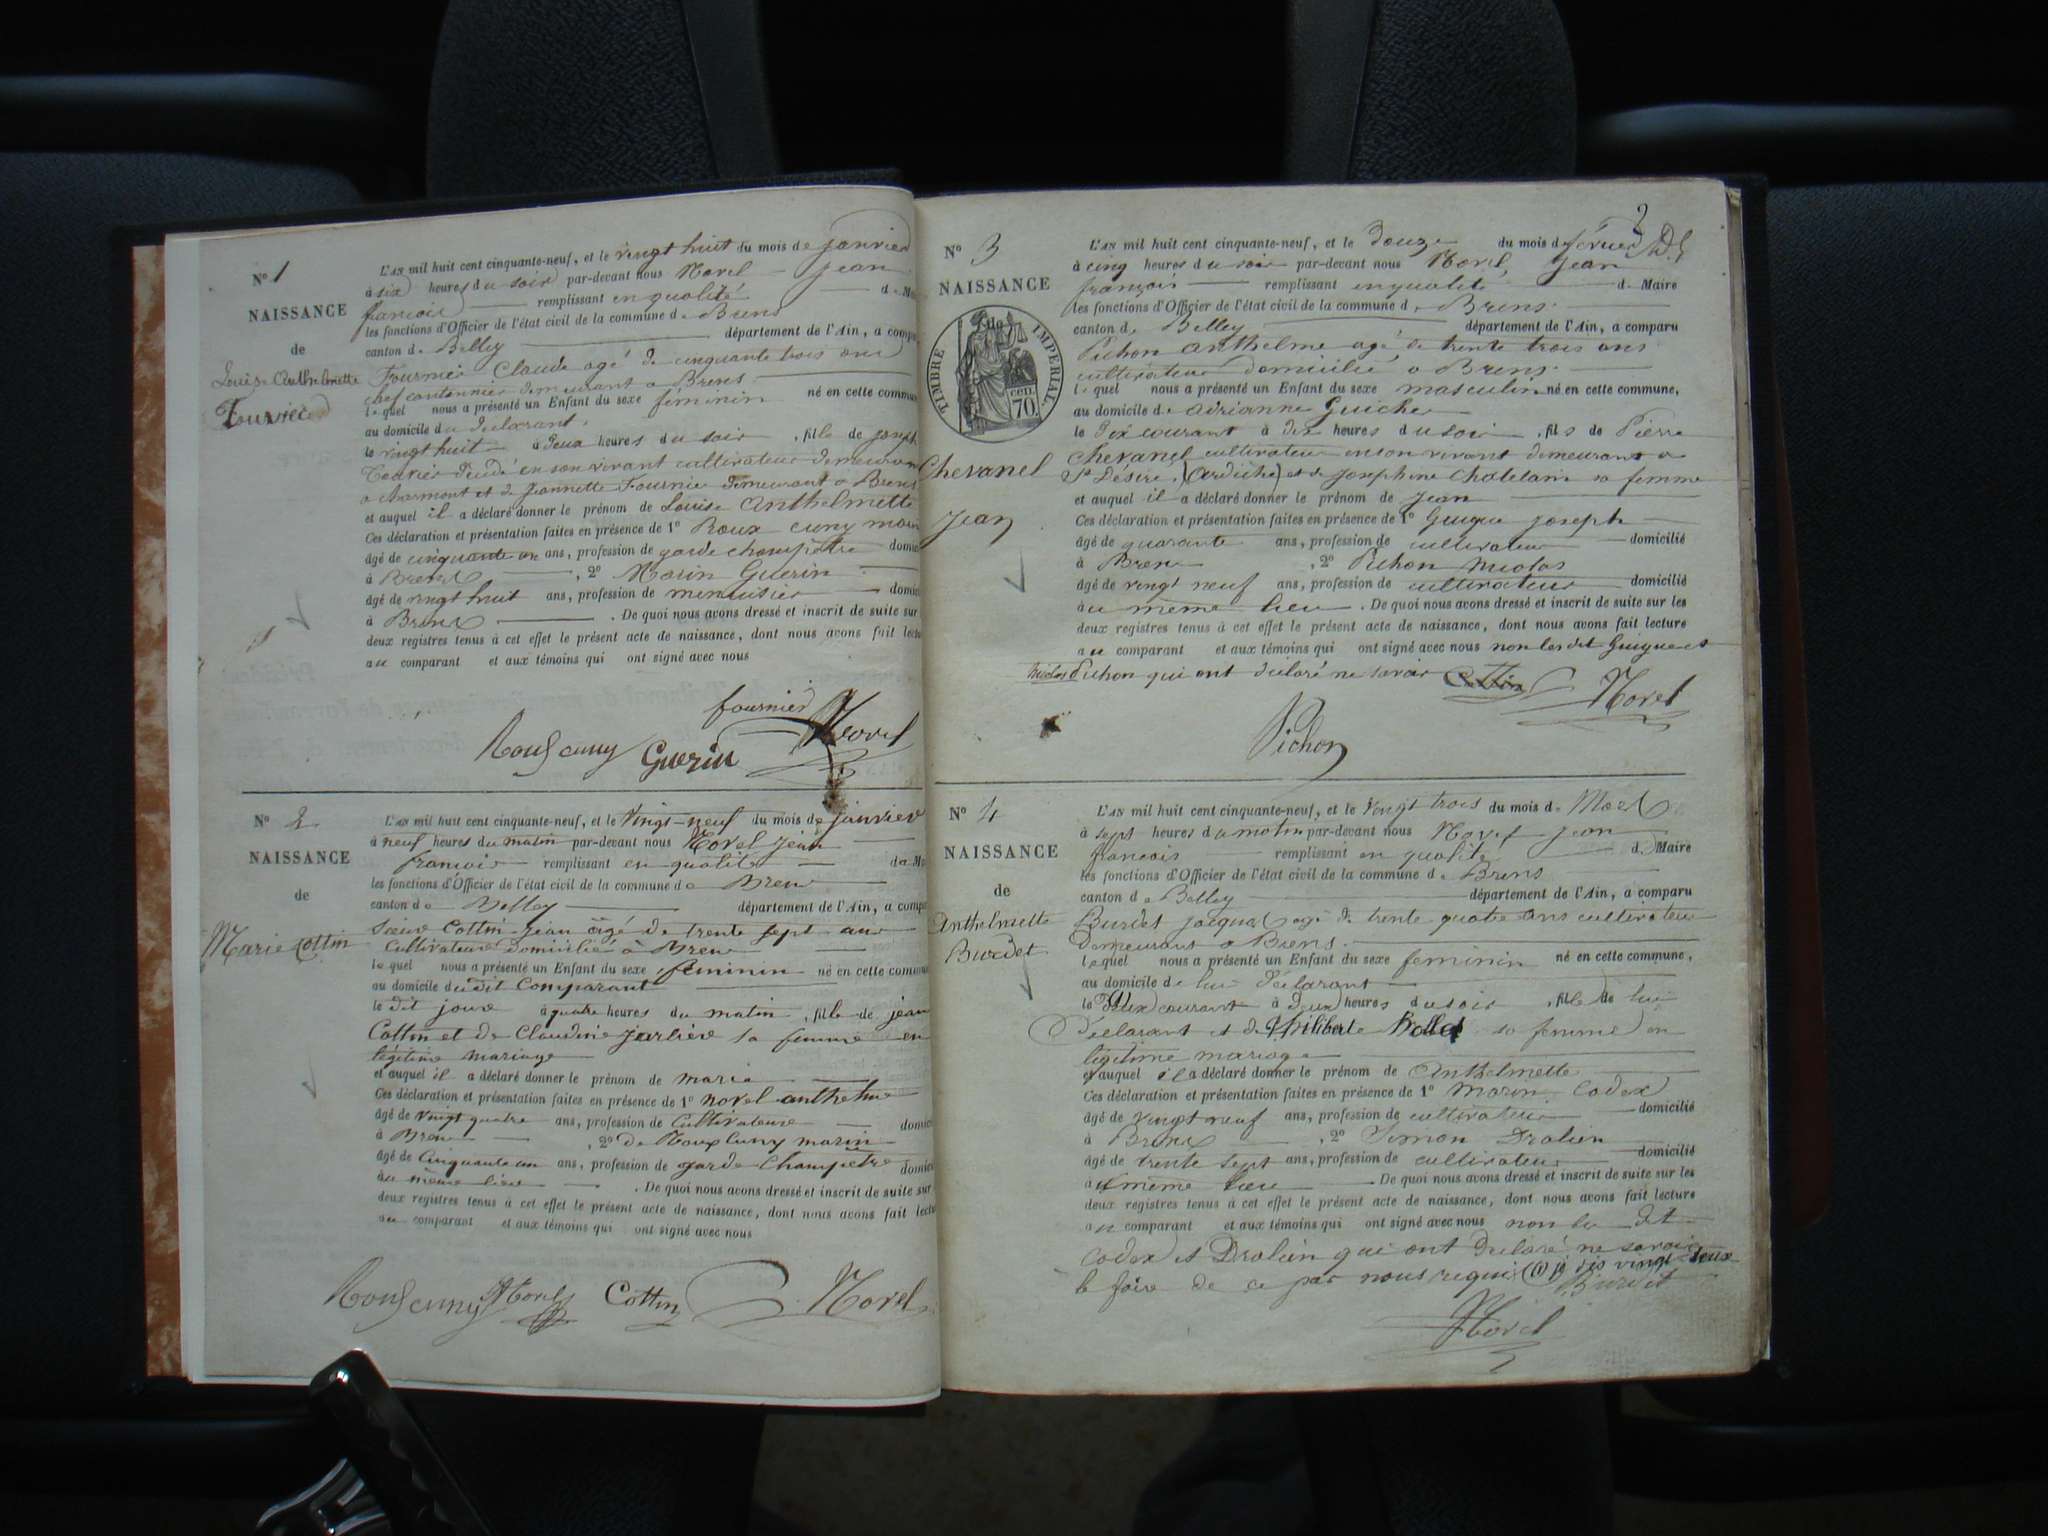 N° 1
NAISSANCE
de
Louise Anthelmette
L'AN mil huit cent cinquante-neuf, et le vingt huit du mois de janvier
à six heures du soir par-devant nous Morel Jean
françois remplissant en qualité de Ma
les fonctions d'Officier de l'état civil de la commune de Brens
canton de Belley département de l'Ain, a compa
Fournier Claude agé de cinquante trois ans
chef cantonnier demeurant a Brens
lequel nous a présenté un Enfant du sexe feminin né en cette commun
au domicile du declarant
le vingt huit à deux heures du soir, fille de joseph
décédé en son vivant cultivateur demeurant
a et de Jeannette Fournier demeurant a Brens
et auquel il a déclaré donner le prénom de Louise Anthelmette
Ces déclaration et présentation faites en présence de 1° Roux cuny marin
âgé de cinquante un ans, profession de garde champetre domici
à Brens, 2° Marin Guerin
âgé de vingt huit ans, profession de menuisier domici
à Brens. De quoi nous avons dressé et inscrit de suite sur
deux registres tenus à cet effet le présent acte de naissance, dont nous avons fait lectu
au comparant et aux témoins qui ont signé avec nous
fournier Morel
Roux cuny Guerin
N° 2
NAISSANCE
de
Marie Cottin
L'AN mil huit cent cinquante-neuf, et le Vingt-neuf du mois de janvier
à neuf heures du matin par-devant nous Morel jean
francois remplissant en qualité de Ma
les fonctions d'Officier de l'état civil de la commune de Brens
canton de Belley département de l'Ain, a compa
Sieur Cottin jean âgé de trente sept ans
Cultivateur Domicilié à Brens
lequel nous a présenté un Enfant du sexe feminin né en cette commun
au domicile dudit Comparant
le dit jour à quatre heures du matin, fille de jean
Cottin et de Claudine jarlière sa femme en
légitime mariage
et auquel il a déclaré donner le prénom de marie
Ces déclaration et présentation faites en présence de 1° morel anthelme
âgé de vingt quatre ans, profession de Cultivateur domici
à Brens, 2° de Roux Cuny marin
âgé de Cinquante un ans, profession de garde Champetre domici
au même lieu. De quoi nous avons dressé et inscrit de suite sur
deux registres tenus à cet effet le présent acte de naissance, dont nous avons fait lectu
au comparant et aux témoins qui ont signé avec nous
Roux cuny Morel Cottin Morel
2
N° 3
NAISSANCE
TIMBRE IMPERIAL
70 cen.
Chevanel
Jean
L'AN mil huit cent cinquante-neuf, et le douze du mois de février
à cinq heures du soir par-devant nous Morel, Jean
françois remplissant en qualité de Maire
les fonctions d'Officier de l'état civil de la commune de Brens
canton de Belley département de l'Ain, a comparu
Pichon anthelme agé de trente trois ans
cultivateur domicilié a Brens
lequel nous a présenté un Enfant du sexe masculin né en cette commune,
au domicile de adrianne Guicher
le dix courant à dix heures du soir, fils de Pierre
Chevanel cultivateur en son vivant demeurant a
St Désiré (Ardèche) et de Josephine Chatelain sa femme
et auquel il a déclaré donner le prénom de Jean
Ces déclaration et présentation faites en présence de 1° Guigue joseph
âgé de quarante ans, profession de cultivateur domicilié
à Brens, 2° Pichon Nicolas
âgé de vingt neuf ans, profession de cultivateur domicilié
au même lieu. De quoi nous avons dressé et inscrit de suite sur les
deux registres tenus à cet effet le présent acte de naissance, dont nous avons fait lecture
au comparant et aux témoins qui ont signé avec nous non les dit Guigue et
Nicolas Pichon qui ont déclaré ne savoir Morel
Pichon
N° 4
NAISSANCE
de
Anthelmette
Burdet
L'AN mil huit cent cinquante-neuf, et le vingt trois du mois de
à sept heures du matin par-devant nous Morel Jean
francois remplissant en qualité de Maire
les fonctions d'Officier de l'état civil de la commune de Brens
canton de Belley département de l'Ain, a comparu
Burdet jacques agé de trente quatre ans cultivateur
demeurant a Brens
lequel nous a présenté un Enfant du sexe feminin né en cette commune,
au domicile de lui déclarant
le courant à deux heures du soir, fille de lui
déclarant et de Philiberte sa femme en
légitime mariage
et auquel il a déclaré donner le prénom de Anthelmette
Ces déclaration et présentation faites en présence de 1° Marin Codex
âgé de vingt neuf ans, profession de cultivateur domicilié
à Brens, 2° Simon Dralien
âgé de trente sept ans, profession de cultivateur domicilié
au même lieu. De quoi nous avons dressé et inscrit de suite sur les
deux registres tenus à cet effet le présent acte de naissance, dont nous avons fait lecture
au comparant et aux témoins qui ont signé avec nous non les dit
Codex et Dralien qui ont déclaré ne savoir
le faire de ce par nous requis je dis vingt deux
Burdet
Morel